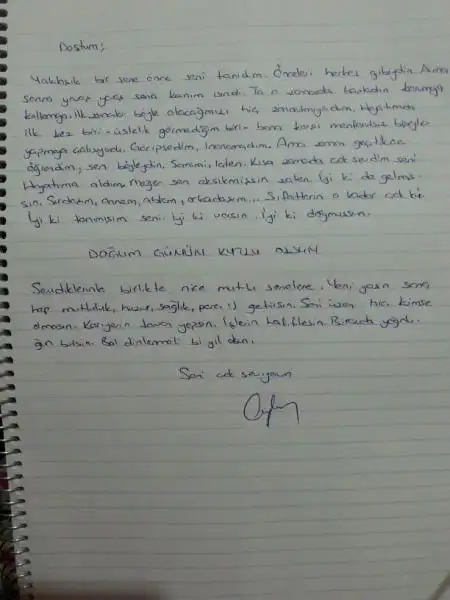 Dostum;
Yaklaşık bir sene önce seni tanıdım. Önceleri herkes gibiydin. Ama
sonra yavaş yavaş sana kanım ısındı. Ta o zamanda başladın tanımaya
kalkmaya. İlk zamanlar böyle olacağımızı hiç zannetmiyordum. Hayatımda
ilk kez biri - üstelik görmediğim biri - bana karşı menfaatsiz bir şeyler
yapmaya çalışıyordu. Garipsedim, inanamadım. Ama zaman geçtikçe
öğrendim, sen böyleydin. Samimi, içten. Kısa zamanda çok sevdim seni
Hayatıma aldım. Meğer sen eksikmişsin zaten. İyi ki de gelmiş-
sin. Sırdaşım, annem, ablam, arkadaşım... Sıfatların o kadar çok ki.
İyi ki tanımışım seni. İyi ki varsın. İyi ki doğmuşsun.
DOĞUM GÜNÜN KUTLU OLSUN
Sevdiklerinle birlikte nice mutlu senelere. Yeni yaşın sana
hep mutluluk, huzur, sağlık, para :) getirsin. Seni üzen hiç kimse
olmasın. Kariyerin tavan yapsın. İşlerin hafiflesin. Birazcık yoğunlu-
ğun bitsin. Bol dinlenmeli bi yıl olsun.
Seni çok seviyorum